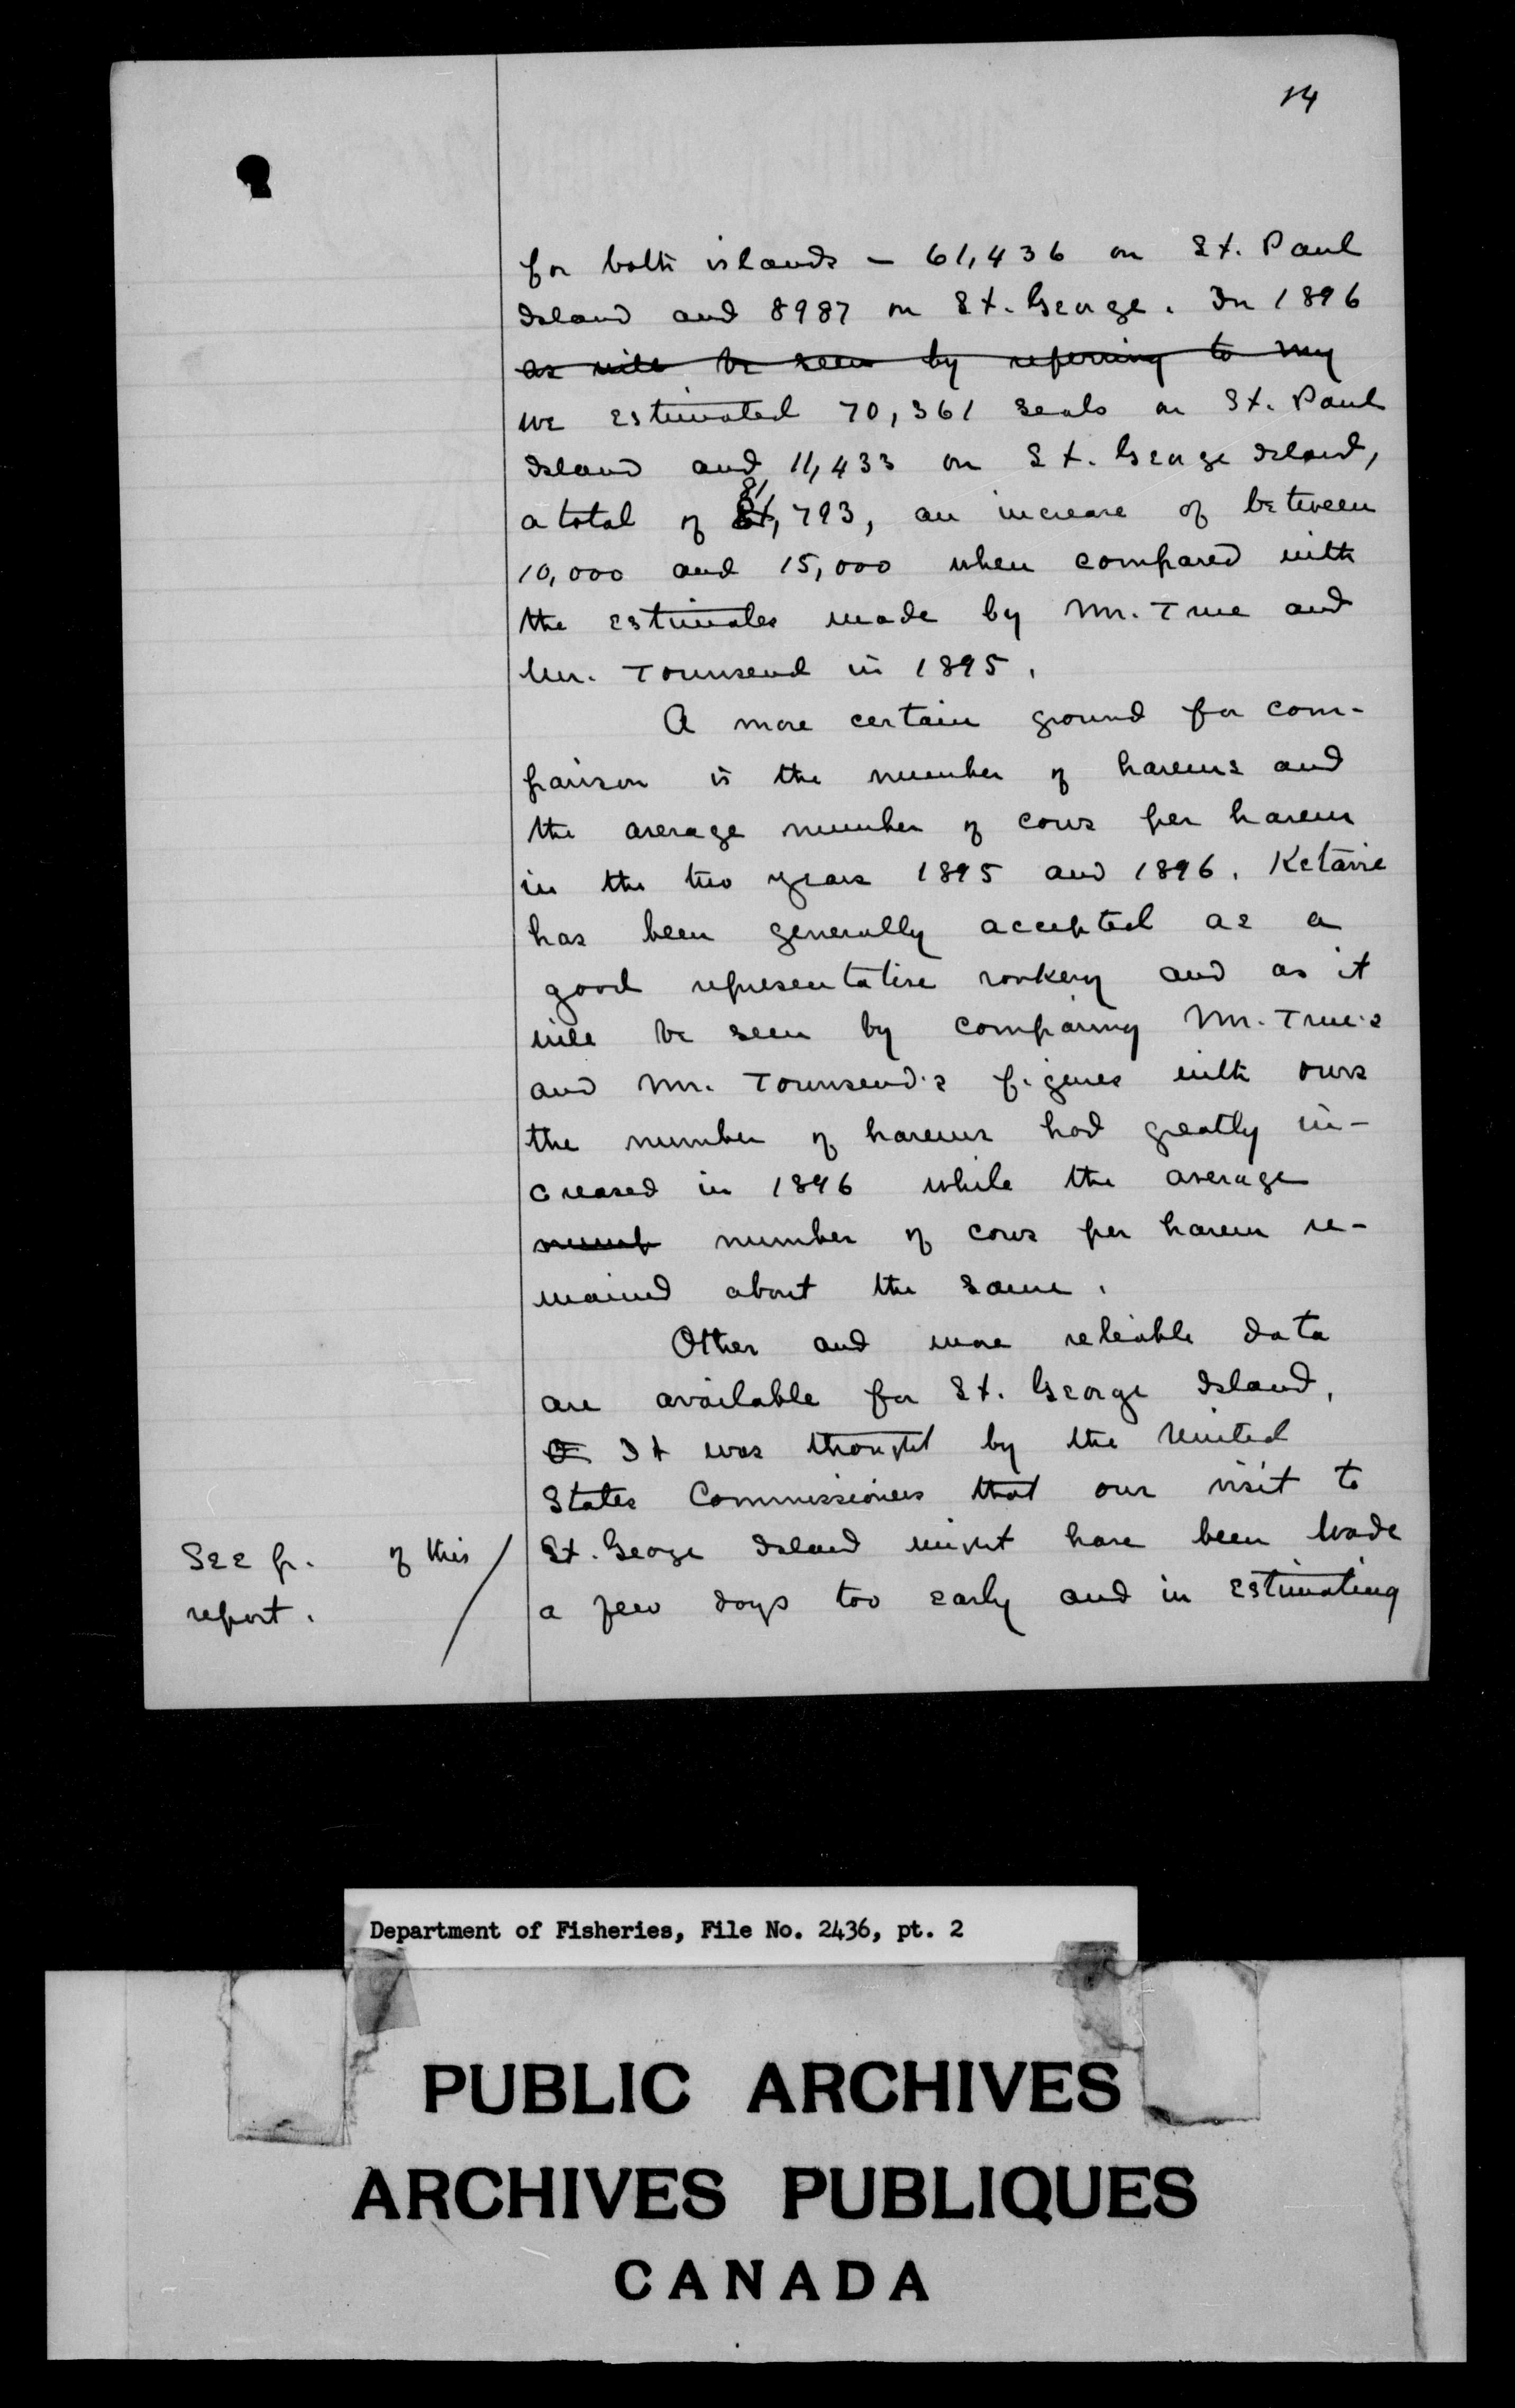 14
for both islands – 61,436 on St. Paul
Island and 8987 on St. George. In 1896
as will be seen by referring to my
we estimated 70,361 seals on St. Paul
Island and 11,433 on St. George Island,
a total of 81,793, an increase of between
10,000 and 15,000 when compared with
the estimates made by Mr. True and
Mr. Townsend in 1895.
A more certain ground for com-
parison is the number of harems and
the average number of cows per harem
in the two years 1895 and 1896. Ketavie
has been generally accepted as a
good representative rookery and as it
will be seen by comparing Mr. True's
and Mr. Townsend's figures with ours
the number of harems had greatly in-
creased in 1896 while the average
numb number of cows per harem re-
mained about the same.
Other and more reliable data
are available for St. George Island.
It was thought by the United
States Commissioners that our visit to
See p. of this
report.
St. George Island might have been made
a few days too early and in estimating
Department of Fisheries, File No. 2436, pt. 2
PUBLIC ARCHIVES
ARCHIVES PUBLIQUES
CANADA